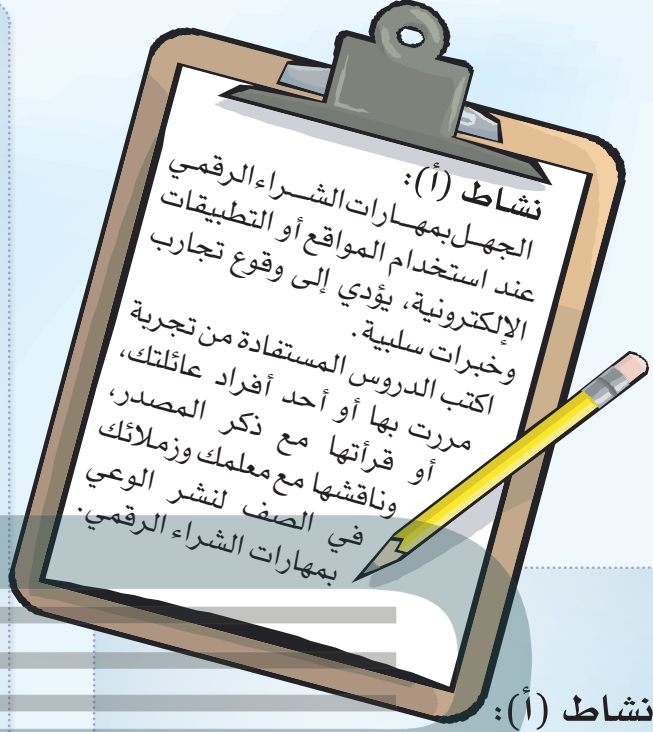 نشاط (أ):
الجهل بمهارات الشراء الرقمي
عند استخدام المواقع أو التطبيقات
الإلكترونية، يؤدي إلى وقوع تجارب
وخبرات سلبية.
اكتب الدروس المستفادة من تجربة
مررت بها أو أحد أفراد عائلتك،
أو قرأتها مع ذكر المصدر،
وناقشها مع معلمك وزملائك
في الصف لنشر الوعي
بمهارات الشراء الرقمي.
نشاط (أ):